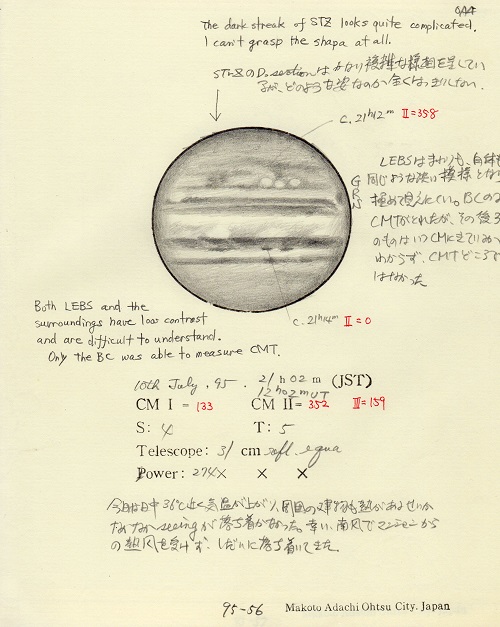 444
The dark streak of STZ looks quite complicated.
I can't grasp the shapa at all.
STrZのD. sectionはかなり複雑な様相を呈してい
るが、どのような姿なのか全くはっきりしない.
c. 21h12m II=358
LEBSはまわりも、自体も
同じような淡い模様となり
極めて見えにくい。BCのみ
CMTがとれたが、その後
のものはいつCMにきているか
わからず、CMTどころで
はなかった
GRS
c. 21h14m II=0
Both LEBS and the
surroundings have low contrast
and are difficult to understand.
Only the BC was able to measure CMT.
10th July. 95. 21h02m (JST)
12h02m UT
CM I = 133 CM II = 352 III=159
S: 4 T: 5
Telescope: 31 cm refl. equa
Power: 274× × ×
今日は日中36℃近く気温が上がり、周囲の建物も熱があるせいか
なかなかseeingが落ち着かなかった。幸い、南風でマンションから
の熱風を受けず、しだいに落ち着いてきた。
95-56 Makoto Adachi Ohtsu City. Japan